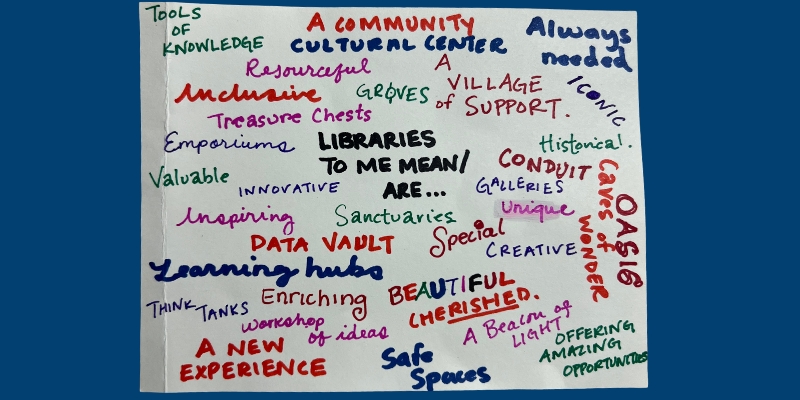 TOOLS
OF
KNOWLEDGE
A COMMUNITY
CULTURAL CENTER
Always
needed
Resourceful
A
VILLAGE
of SUPPORT.
ICONIC
Inclusive
GROVES
Treasure Chests
Emporiums
LIBRARIES
TO ME MEAN/
ARE...
Historical.
CONDUIT
Valuable
INNOVATIVE
GALLERIES
Caves of
WONDER
OASIS
Inspiring
Sanctuaries
Unique
DATA VAULT
Special
CREATIVE
Learning hubs
THINK TANKS
Enriching
BEAUTIFUL
CHERISHED.
workshop
of ideas
A Beacon of
LIGHT
OFFERING
AMAZING
OPPORTUNITIES
A NEW
EXPERIENCE
Safe
Spaces